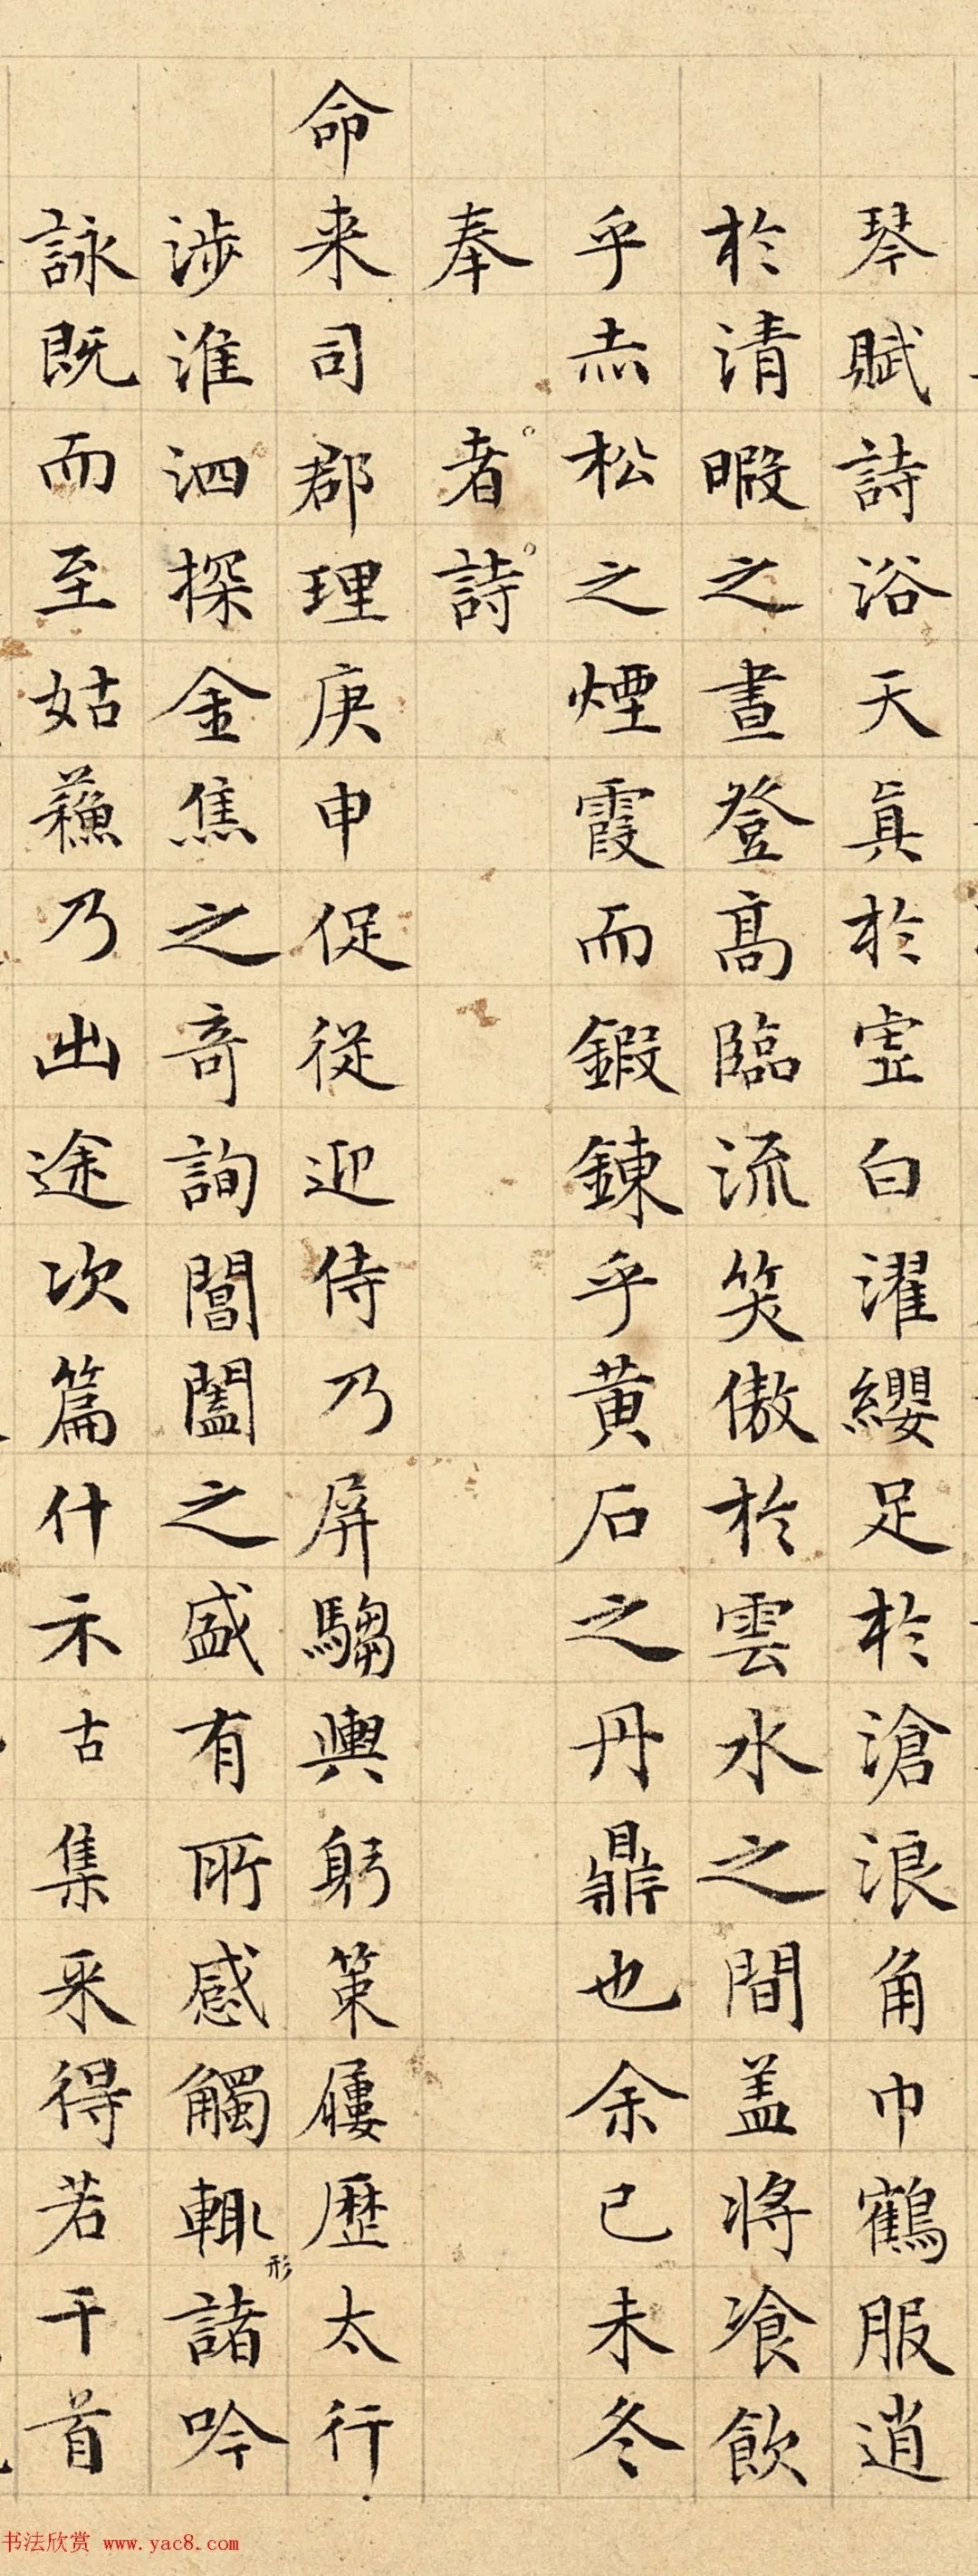 琴賦詩浴天真於虛白濯纓足於滄浪角巾鶴服逍
於清暇之晝登高臨流笑傲於雲水之間盖將飡飲
乎赤松之煙霞而鍜鍊乎黄石之丹鼎也余己未冬
奉者詩
命来司郡理庚申促従迎侍乃屏騶輿躬策屨歷太行
涉淮泗探金焦之竒詢閶闔之盛有所感觸輙形諸吟
詠既而至姑蘓乃出途次篇什示古集采得若干首
书法欣赏 www.yac8.com